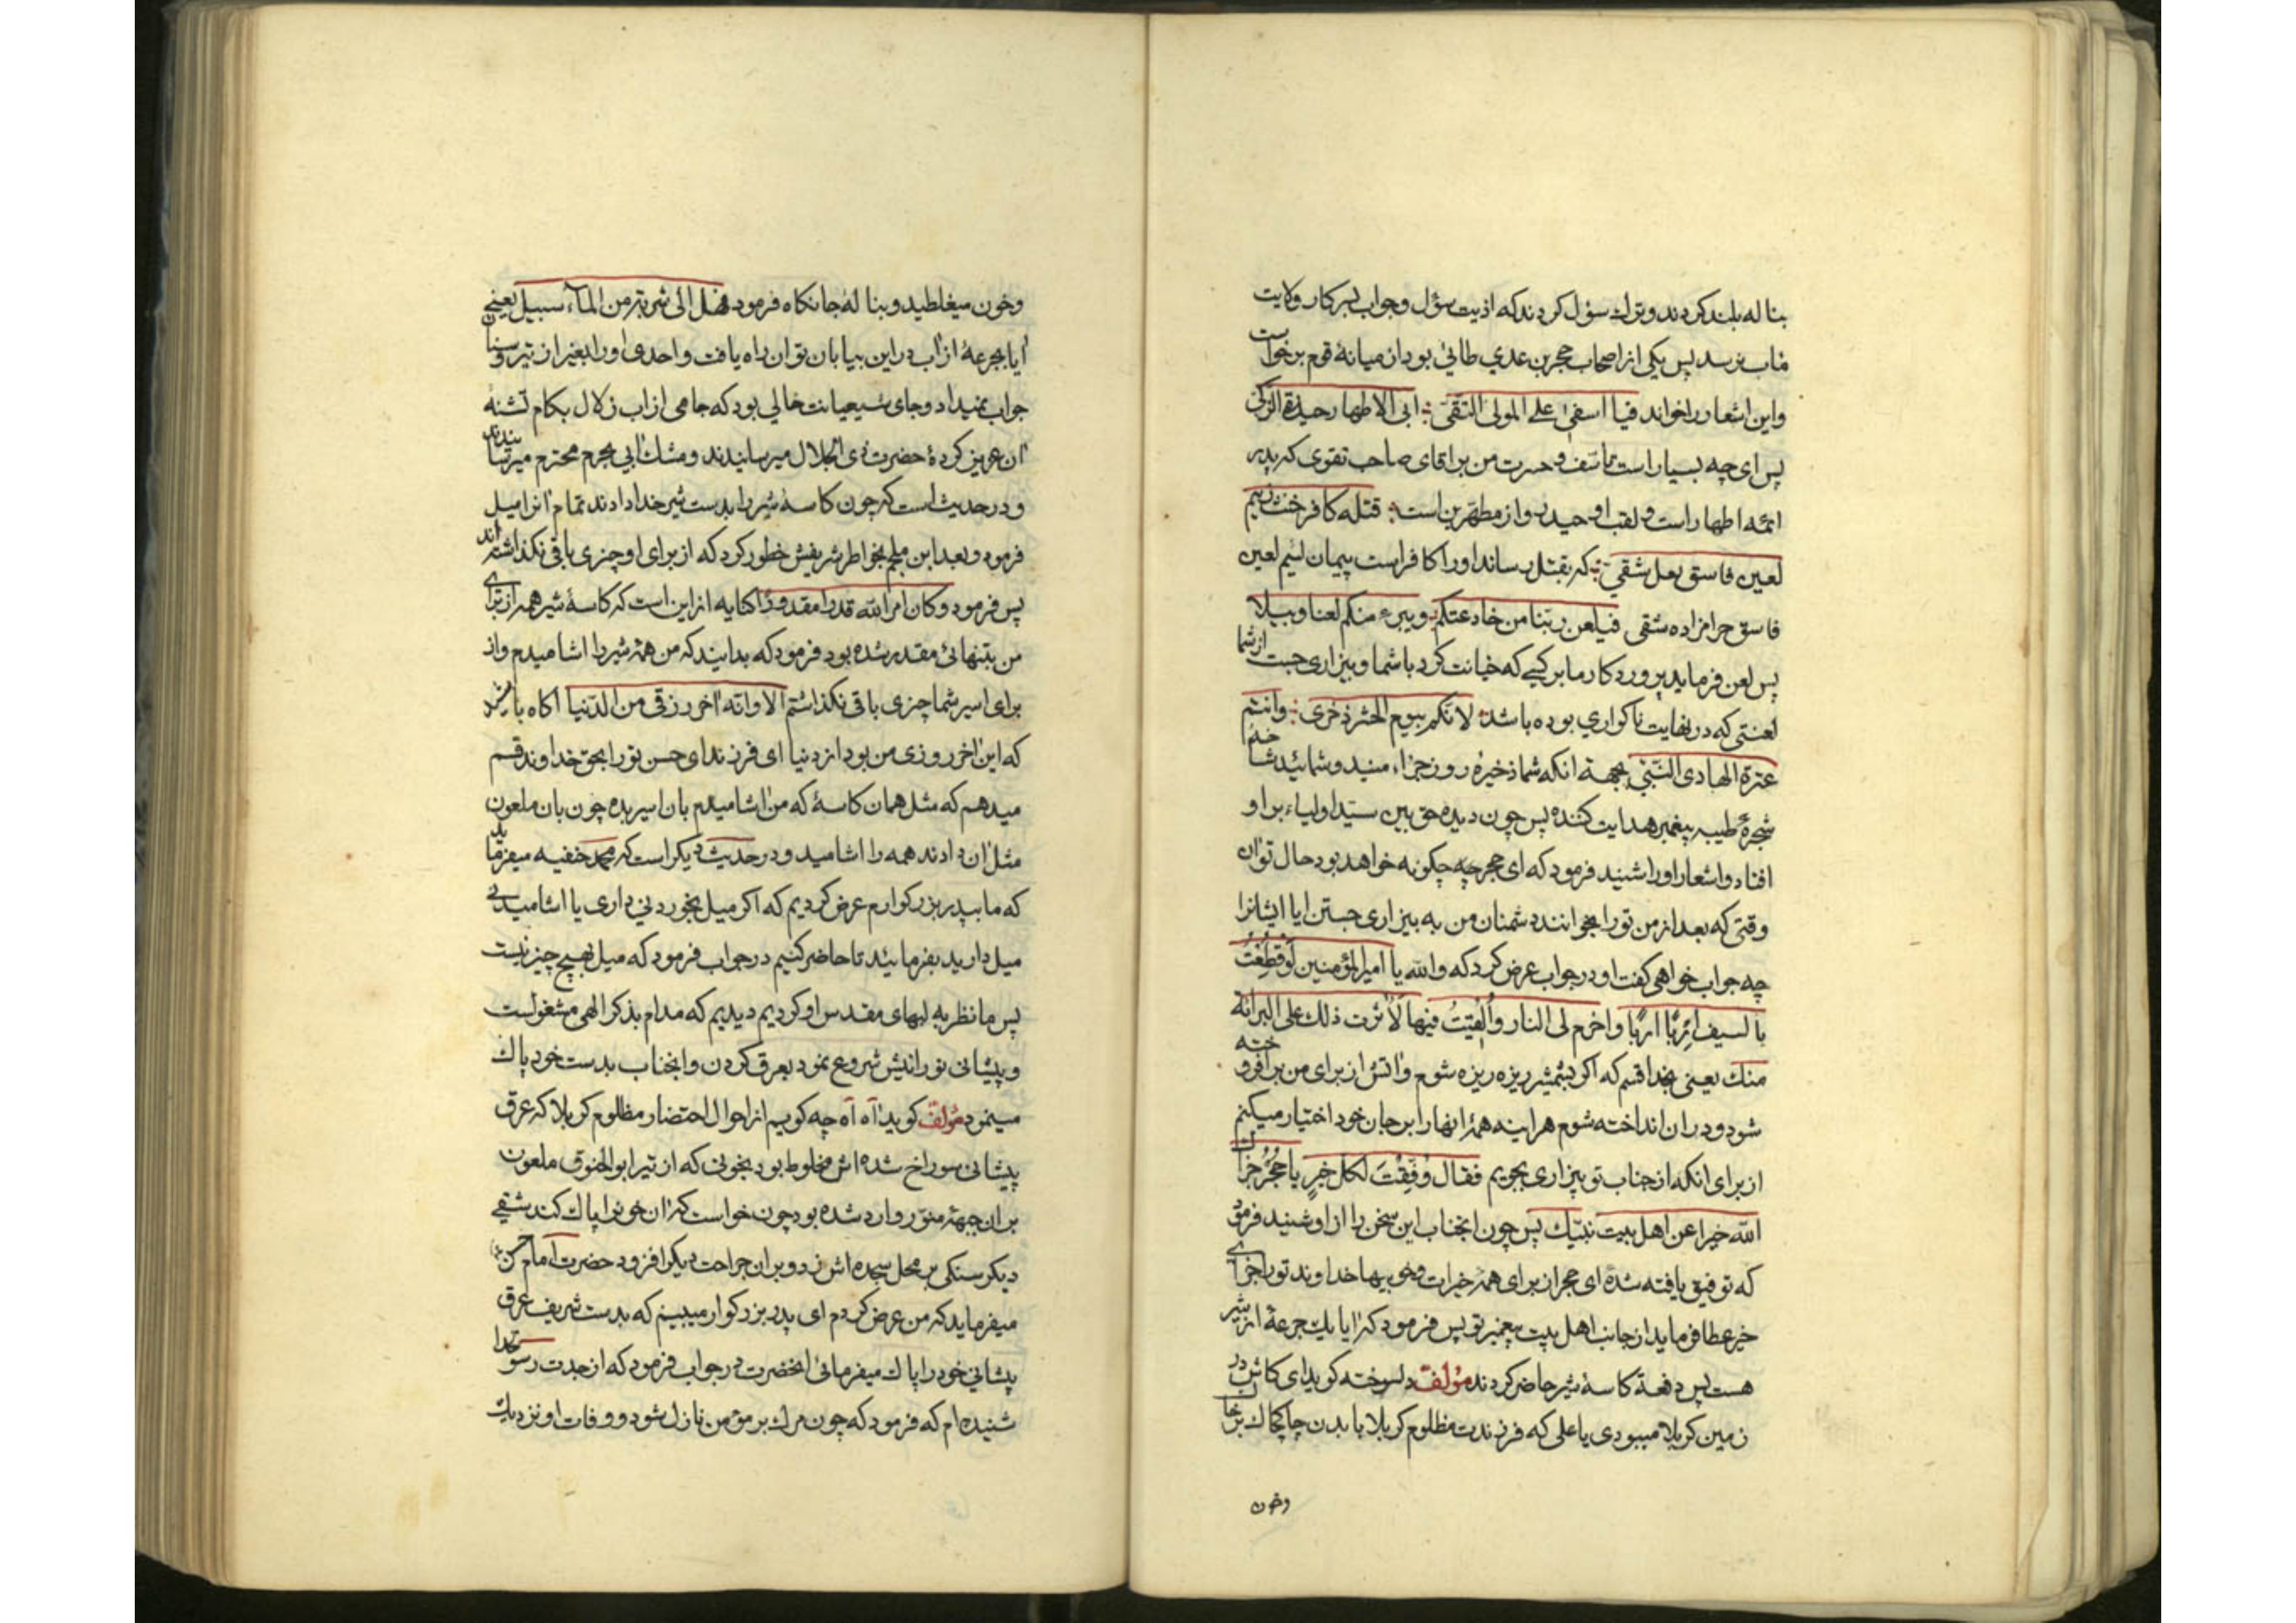 بناله بلند کردند و ترك سؤل کردند که اذیت سؤل وجواب بسرکار ولایت
ماب نرسد پس یکی از اصحاب حجر بن عدي طائی بود از میانهٔ قوم برخواست
واین اشعار را خواند فیا اسفی علی المولی التقی ؛ ابی الاطهار حیدرة الزکی
پس ای چه بسیار است تاسف و حسرت من بر اقای صاحب تقوی که پدر
ائمه اطهار است و لقب او حیدر و از مطهرین است ؛ قتله کافر خنث زنیم
لعین فاسق بغل شقی ؛ که بقتل رساند او را کافر است پیمان لئیم لعین
فاسق حرامزاده شقی فیلعن ربنا من خادعتکم ؛ ویبرء منکم لعنا وبیلا
پس لعن فرماید پروردکار ما بر کسی که خیانت کرد با شما وبیزاری جست از شما
لعنتی که در نهایت ناکواري بوده باشد لانکم بیوم الحشر ذخری ؛ وانتم
عترة الهادی النبی بجهة انکه شما ذخیرهٔ روز جزاء منید و شمائید
شجرهٔ طیبه پیغمبر هدایت کننده پس چون دیده حق بین سید اولیاء بر او
افتاد و اشعار او را شنید فرمود که ای حجر چه چکونه خواهد بود حال تو ان
وقتی که بعد از من تو را بخوانند دشمنان من به بیزاری جستن ایا ایشانرا
چه جواب خواهی کفت او در جواب عرض کرد که والله یا امیر المؤمنین لو قطعت
بالسیف اربا اربا واضرم لی النار والقیت فیها لاثرت ذلك علی البرائة
منك یعنی بخدا قسم که اکر بشمشیر ریزه ریزه شوم واتش از برای من برافروخته
شود و در ان انداخته شوم هراینه همهٔ انها را بر جان خود اختیار میکنم
از برای انکه از جناب تو بیزاری بجویم فقال وفقت لکل خیر یا حجر جزاك
الله خیرا عن اهل بیت نبیك پس چون انجناب این سخن را از او شنید فرمود
که توفیق یافته شدهٔ ای حجر از برای همه خیرات و خوبیها خداوند تو را جزای
خیر عطا فرماید از جانب اهل بیت پیغمبر تو پس فرمود که ایا یك جرعهٔ از شیر
هست پس دفعة کاسهٔ شیر حاضر کردند مؤلف دلسوخته کوید ای کاش در
زمین کربلا میبودی یا علی که فرزندت مظلوم کربلا با بدن چاکچاك بر خاك
وخون
وخون میغلطید وبنالهٔ جانکاه فرمود فهل الی شربة من الماء سبیل یعنی
ایا بجرعهٔ از اب در این بیابان توان راه یافت واحدی او را بغیر از تیر و سنان
جواب نمیداد وجای شیعیانت خالی بود که جامی از اب زلال بکام تشنه
ان عزیز کردهٔ حضرت ذی الجلال میرسانیدند ومشك ابی بحرم محترم میرسانیدند
و در حدیث است که چون کاسهٔ شیر را بدست شیر خدا دادند تمام انرا میل
فرمود و بعد ابن ملجم بخواطر شریفش خطور کرد که از برای او چیزی باقی نکذاشته اند
پس فرمود وکان امر الله قدرا مقدورا کنایه از این است که کاسهٔ شیر همه از برای
من بتنهائی مقدر شده بود فرمود که بدانید که من همهٔ شیر را اشامیدم و از
برای اسیر شما چیزی باقی نکذاشتم الا وانه اخر رزقی من الدنیا اکاه باشید
که این اخر روزی من بود از دنیا ای فرزند ای حسن تو را بحق خداوند قسم
میدهم که مثل همان کاسهٔ که من اشامیدم بان اسیر بده چون بان ملعون
مثل ان دادند همه را اشامید و در حدیث دیکر است که محمد حنفیه میفرماید
که ما بپدر بزرکوارم عرض کردیم که اکر میل بخوردنی داری یا اشامیدنی
میل دارید بفرمائید تا حاضر کنیم در جواب فرمود که میل بهیچ چیز نیست
پس ما نظر به لبهای مقدس او کردیم دیدیم که مدام بذکر الهی مشغولست
و پیشانی نورانیش شروع نمود بعرق کردن وانجناب بدست خود پاك
مینمود مؤلف کوید آه آه چه کویم از احوال احتضار مظلوم کربلا که عرق
پیشانی سوراخ شده اش مخلوط بود بخونی که از تیر ابو الحنوق ملعون
بر ان جبههٔ منور وارد شده بود چون خواست که ان خونرا پاك کند شقی
دیکر سنکی بر محل سجده اش زد و بر ان جراحت دیکر افزود حضرت امام حسن
میفرماید که من عرض کردم ای پدر بزرکوار میبینم که بدست شریف عرق
پیشانی خود را پاك میفرمائی انحضرت در جواب فرمود که از جدت رسول خدا
شنیده ام که فرمود که چون مرك بر مؤمن نازل شود و وفات او نزدیك